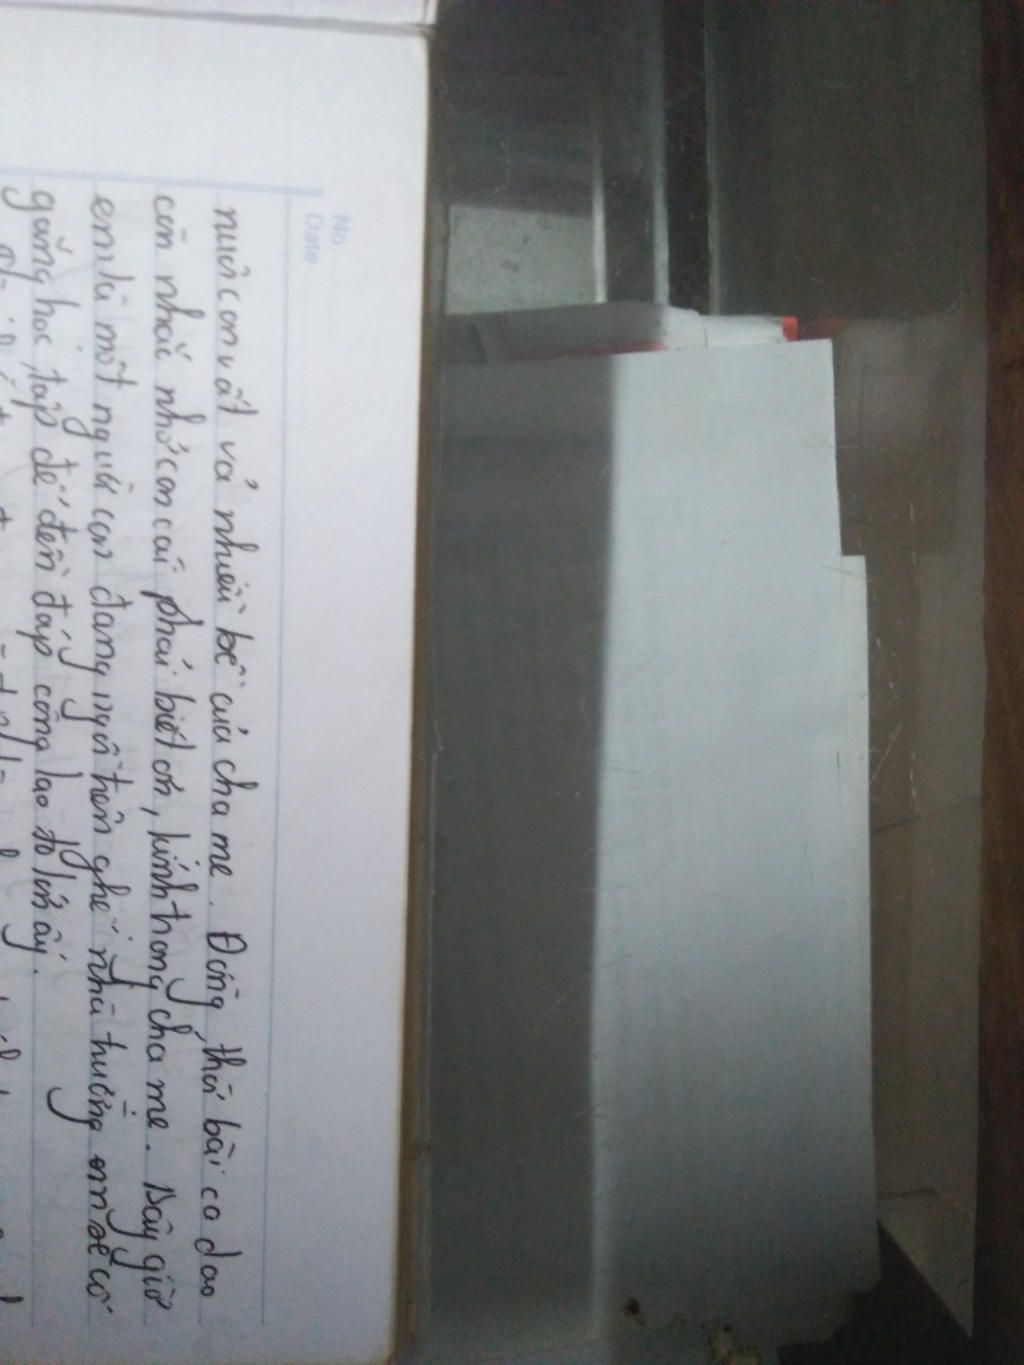 No
Date
nuôi con vất vả nhiều bề của cha mẹ. Đồng thời bài ca dao
còn nhắc nhở con cái phải biết ơn, kính trọng cha mẹ. Bây giờ
em là một người con đang ngồi trên ghế nhà trường em sẽ cố
gắng học tập để đền đáp công lao to lớn ấy.